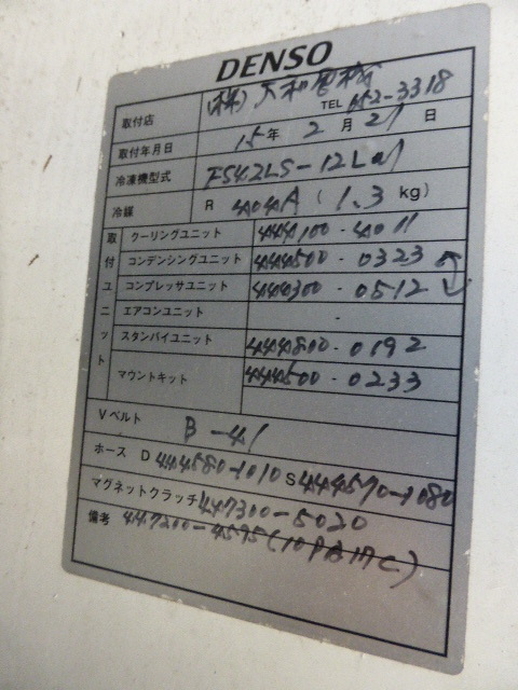 DENSO
取付店 (株)大和電機 TEL 152-3318
取付年月日 15年 2月 21日
冷凍機型式 FS42LS-12L
冷媒 R 404A (1.3kg)
取付ユニット
クーリングユニット 444100-4011
コンデンシングユニット 444500-0323
コンプレッサユニット 444300-0512
エアコンユニット -
スタンバイユニット 444800-0192
マウントキット 444500-0233
Vベルト B-41
ホース D 444580-1010 S 444570-1080
マグネットクラッチ 447300-5020
備考 447200-4595(10PA17C)